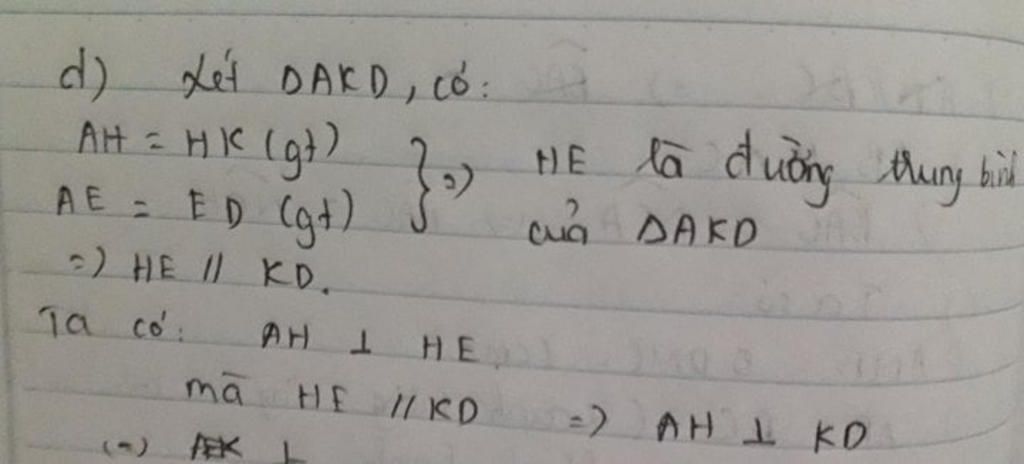 d) Xét ΔAKD, có:
AH = HK (gt)
AE = ED (gt)
} => HE là đường trung bình
của ΔAKD
=> HE // KD.
Ta có: AH ⊥ HE
mà HE // KD => AH ⊥ KD
(=) AK ⊥